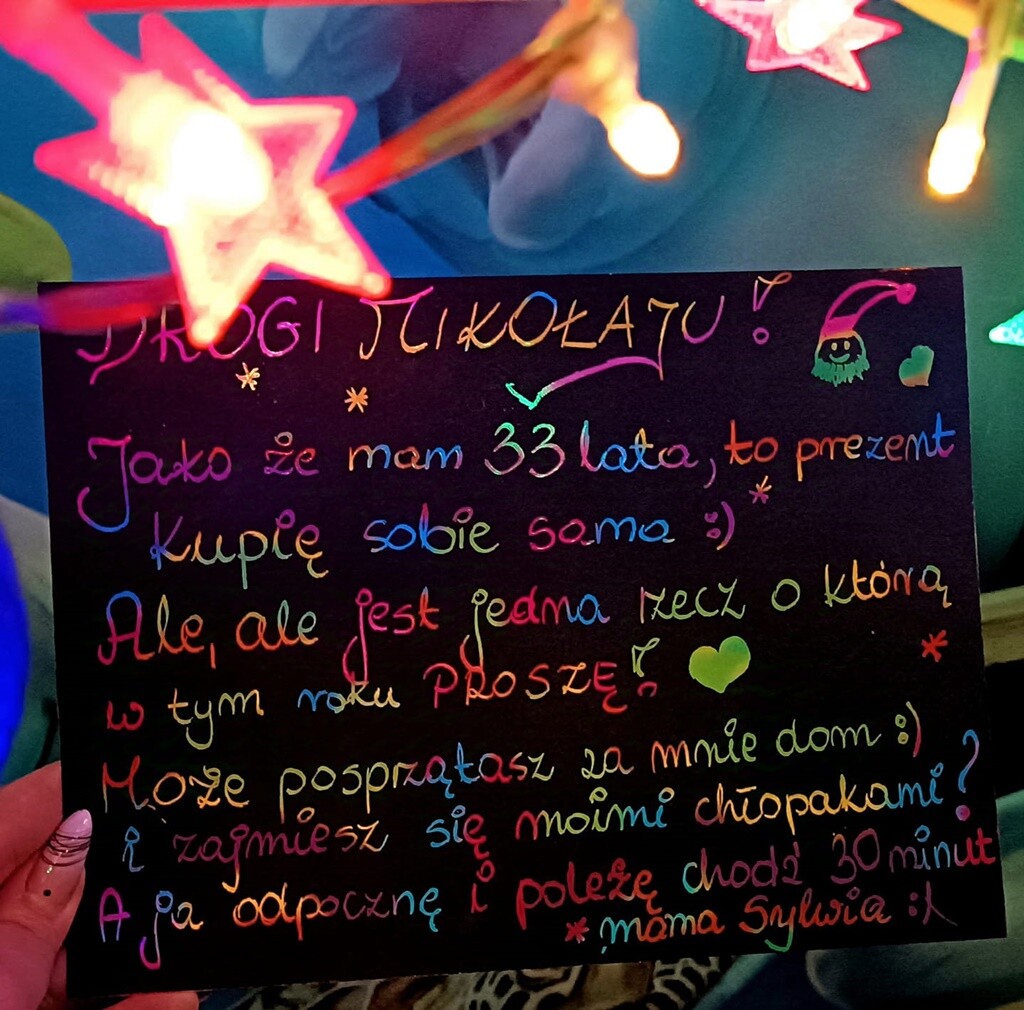 DROGI MIKOŁAJU!
Jako że mam 33 lata, to prezent
Kupię sobie sama :)
Ale, ale jest jedna rzecz o którą
w tym roku PROSZĘ!
Może posprzątasz za mnie dom :)
i zajmiesz się moimi chłopakami?
A ja odpocznę i poleżę chodź 30 minut
* mama Sylwia :)